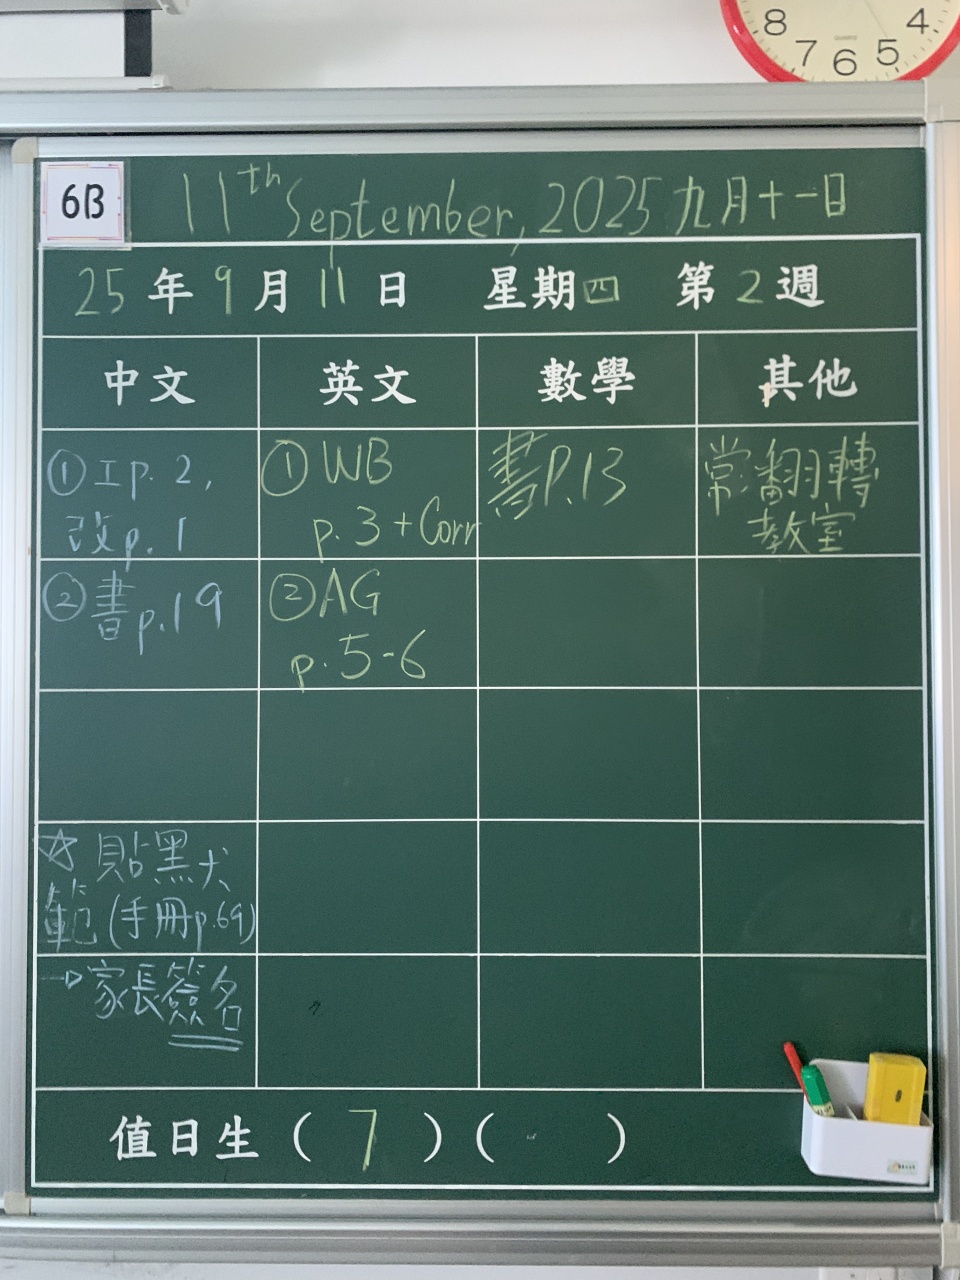 8 7 6 5 4
6B
11th September, 2025 九月十一日
25年9月11日 星期四 第2週
中文 英文 數學 其他
①工p.2,
改p.1
①WB
p.3+Corr
書P.13
常:翻轉
教室
②書p.19
②AG
p.5-6
☆貼黑犬
範(手冊p.69)
→家長簽名
值日生(7)( )